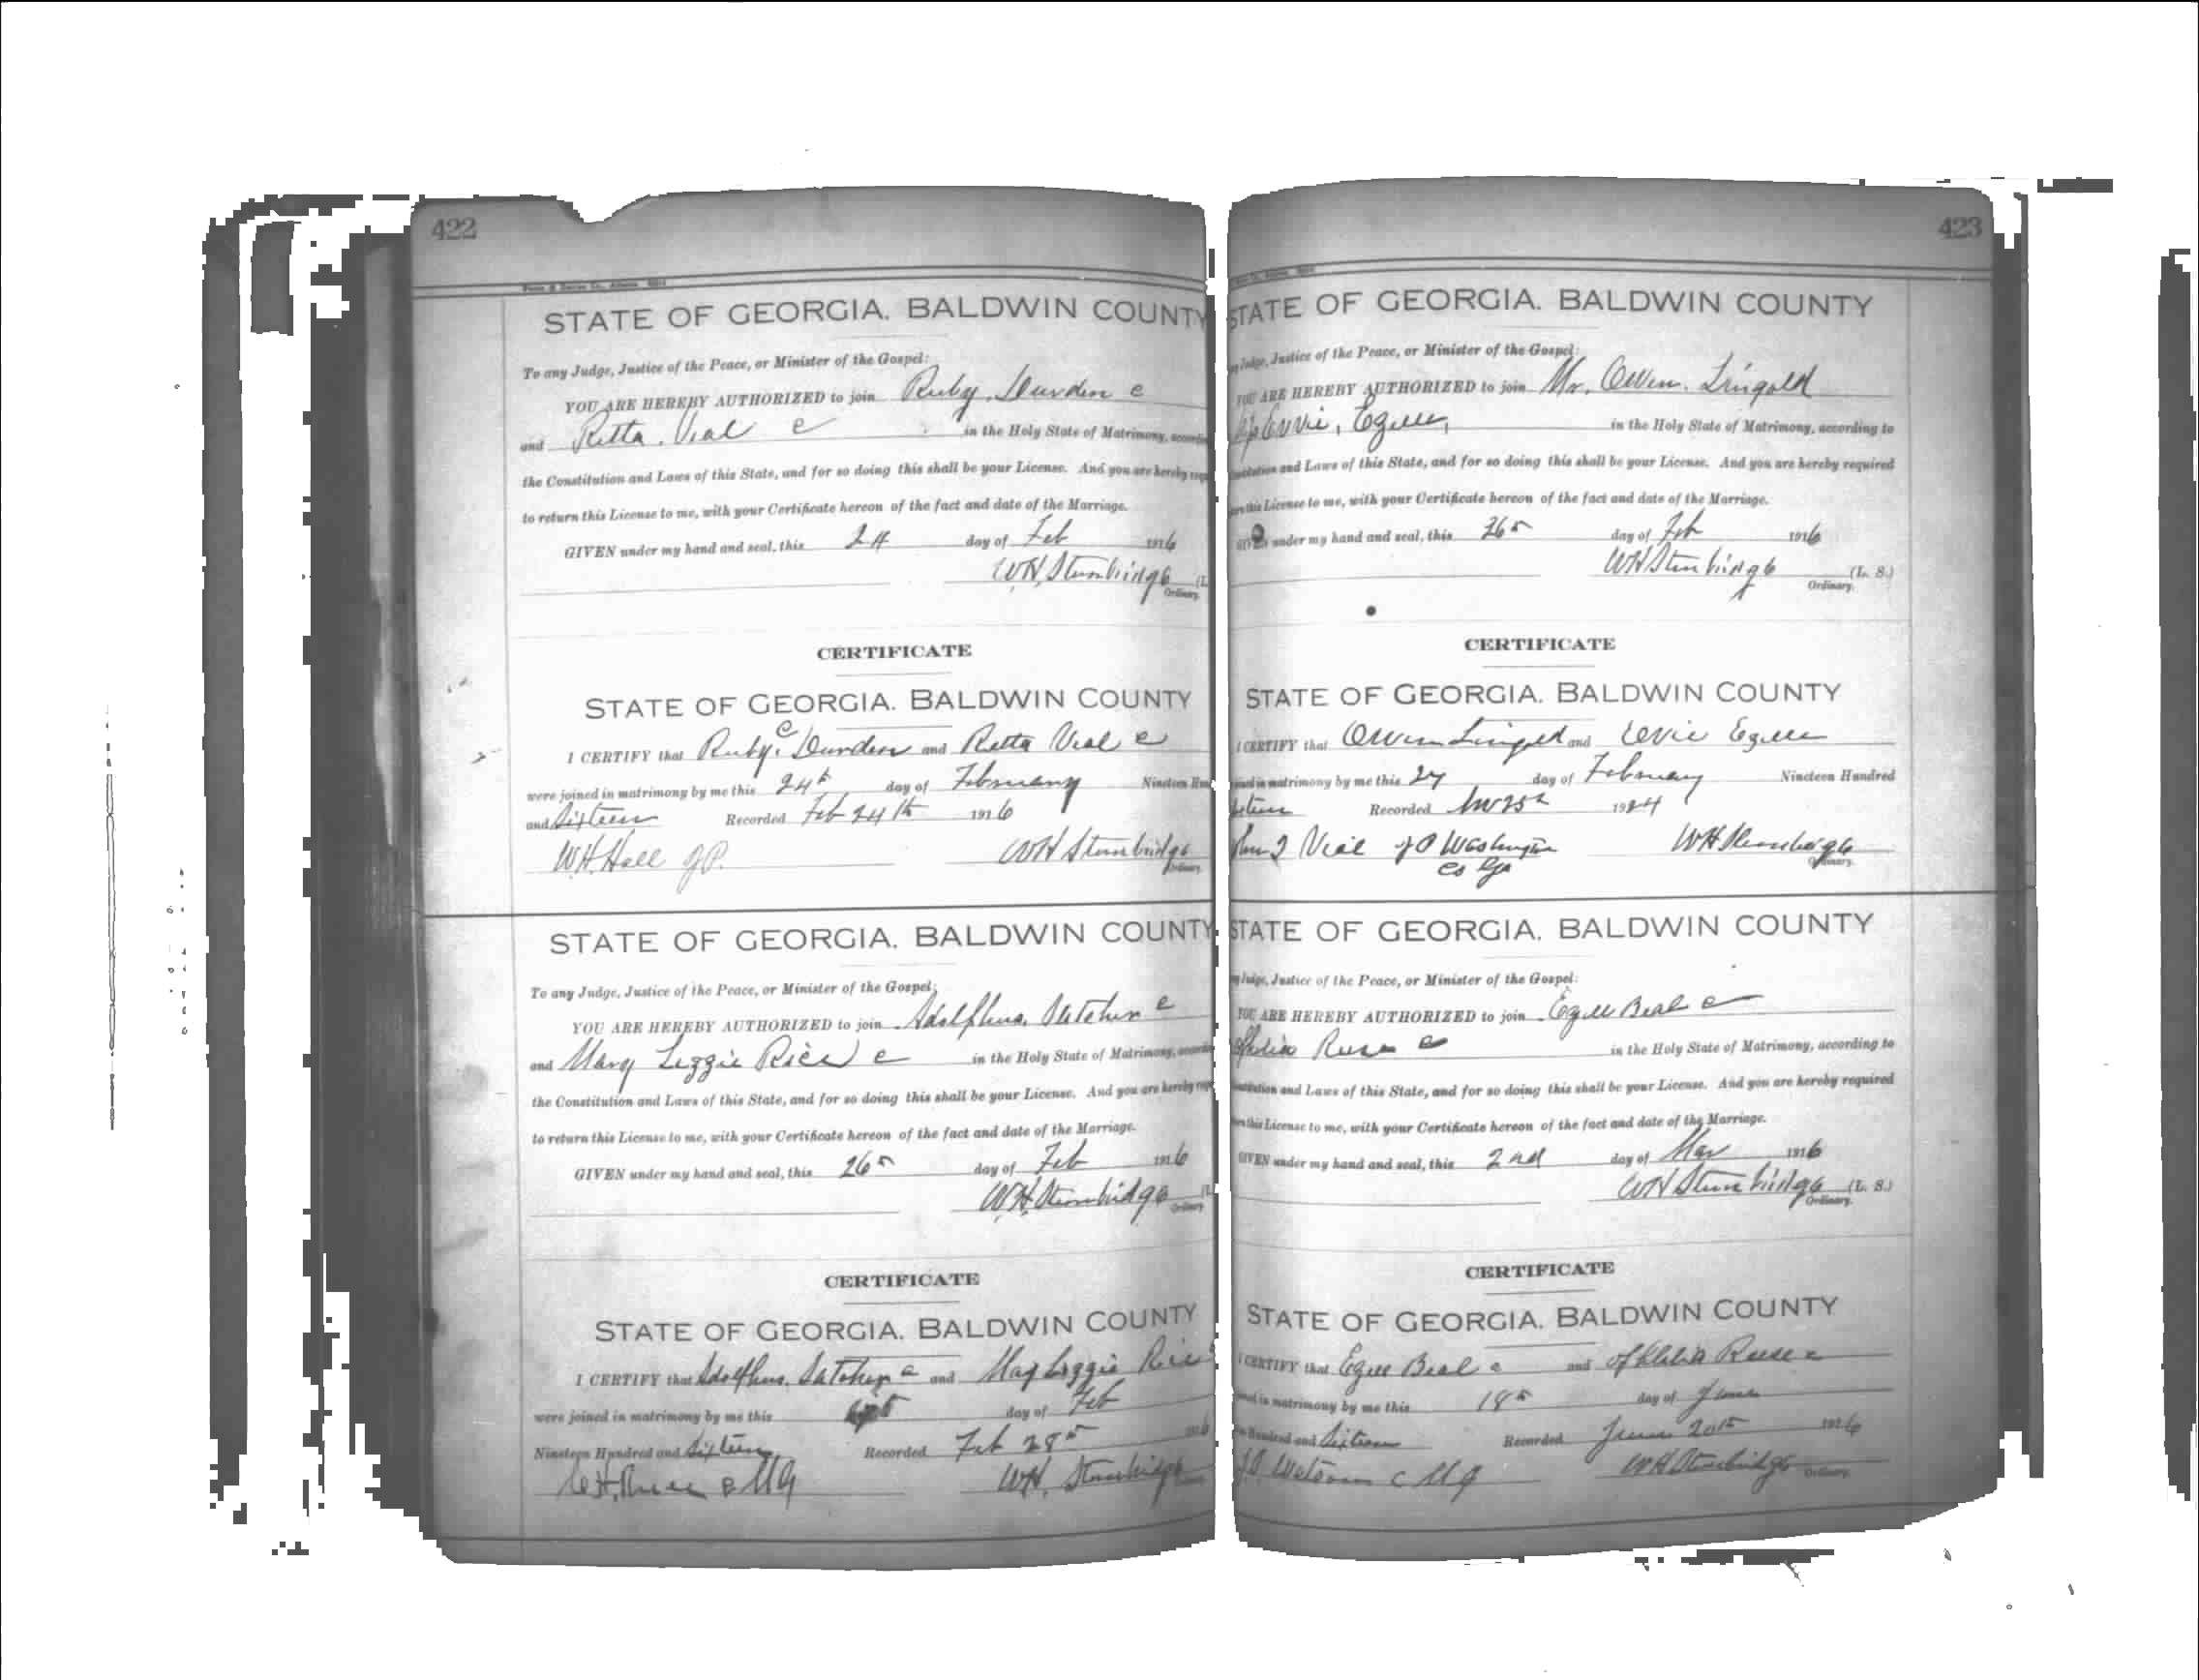 422
STATE OF GEORGIA. BALDWIN COUNTY
To any Judge, Justice of the Peace, or Minister of the Gospel:
YOU ARE HEREBY AUTHORIZED to join Ruby. Durden c
and Retta. Veal c in the Holy State of Matrimony,
the Constitution and Laws of this State, and for so doing this shall be your License. And you are hereby
to return this License to me, with your Certificate hereon of the fact and date of the Marriage.
GIVEN under my hand and seal, this 24 day of Feb 1916
W.H. Stembridge (L.
Ordinary.
CERTIFICATE
STATE OF GEORGIA. BALDWIN COUNTY
I CERTIFY that Ruby. c Durden and Retta Veal c
were joined in matrimony by me this 24th day of February Nineteen
and Sixteen Recorded Feb 24th 1916
W.H. Hall J.P. W H Stembridge
Ordinary.
STATE OF GEORGIA. BALDWIN COUNTY
To any Judge, Justice of the Peace, or Minister of the Gospel:
YOU ARE HEREBY AUTHORIZED to join Adolphus. c
and Mary Lizzie Rice c in the Holy State of Matrimony,
the Constitution and Laws of this State, and for so doing this shall be your License. And you are hereby
to return this License to me, with your Certificate hereon of the fact and date of the Marriage.
GIVEN under my hand and seal, this 26th day of Feb 1916
W.H. Stembridge
Ordinary
CERTIFICATE
STATE OF GEORGIA. BALDWIN COUNTY
I CERTIFY that Adolphus. c and May Lizzie Rice
were joined in matrimony by me this day of Feb
Nineteen Hundred and Sixteen Recorded Feb 28th 1916
M G W.H. Stembridge
423
STATE OF GEORGIA. BALDWIN COUNTY
Judge, Justice of the Peace, or Minister of the Gospel:
YOU ARE HEREBY AUTHORIZED to join Mr. Owen. Lingold
Ezell, in the Holy State of Matrimony, according to
and Laws of this State, and for so doing this shall be your License. And you are hereby required
this License to me, with your Certificate hereon of the fact and date of the Marriage.
under my hand and seal, this 26th day of Feb 1916
W H Stembridge (L. S.)
Ordinary.
CERTIFICATE
STATE OF GEORGIA. BALDWIN COUNTY
I CERTIFY that Owen Lingold and Evvie Ezell
in matrimony by me this 27 day of February Nineteen Hundred
Recorded 25th 1924
Veal J P Washington W H Stembridge
Co Ga Ordinary.
STATE OF GEORGIA. BALDWIN COUNTY
Judge, Justice of the Peace, or Minister of the Gospel:
YOU ARE HEREBY AUTHORIZED to join Ezell Beal c
c in the Holy State of Matrimony, according to
and Laws of this State, and for so doing this shall be your License. And you are hereby required
this License to me, with your Certificate hereon of the fact and date of the Marriage.
GIVEN under my hand and seal, this 2nd day of Mar 1916
W H Stembridge (L. S.)
Ordinary.
CERTIFICATE
STATE OF GEORGIA. BALDWIN COUNTY
I CERTIFY that Ezell Beal c and Reese c
in matrimony by me this 18th day of June
Hundred and Sixteen Recorded June 20th 1916
Watson c M G W H Stembridge
Ordinary.